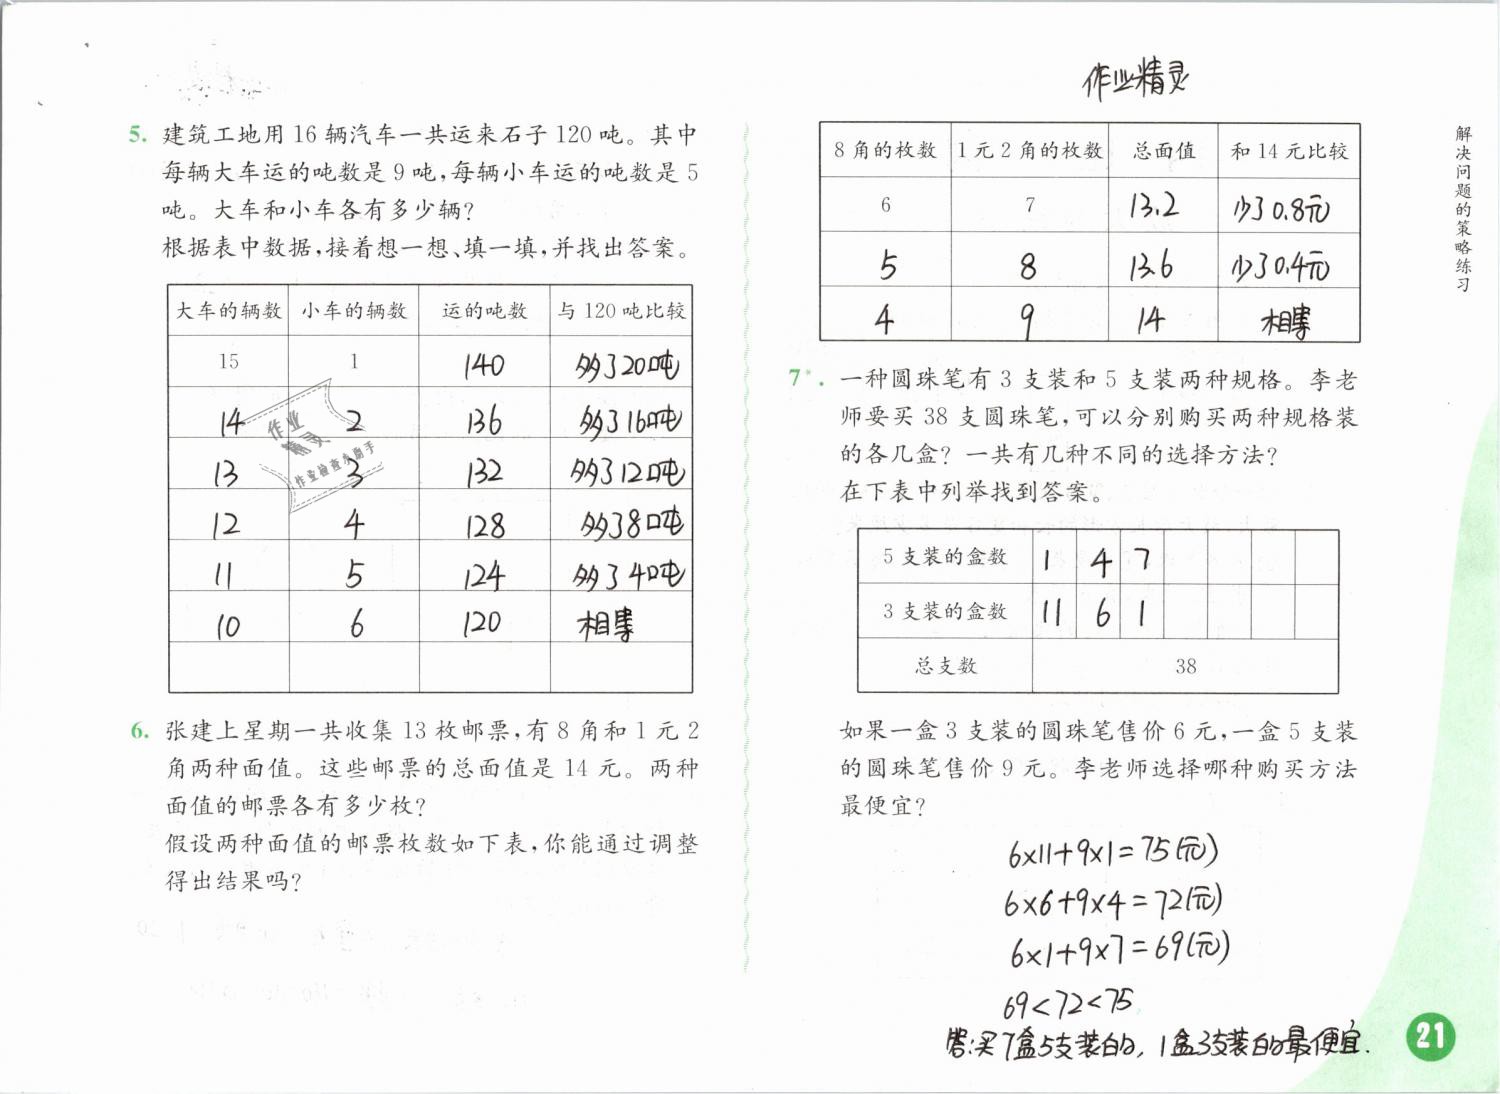 作业精灵
5. 建筑工地用 16 辆汽车一共运来石子 120 吨。其中
每辆大车运的吨数是 9 吨,每辆小车运的吨数是 5
吨。大车和小车各有多少辆?
根据表中数据,接着想一想、填一填,并找出答案。
大车的辆数 小车的辆数 运的吨数 与 120 吨比较
15 1 140 多了20吨
14 2 136 多了16吨
13 3 132 多了12吨
12 4 128 多了8吨
11 5 124 多了4吨
10 6 120 相等
作业
精灵
作业检查小助手
6. 张建上星期一共收集 13 枚邮票,有 8 角和 1 元 2
角两种面值。这些邮票的总面值是 14 元。两种
面值的邮票各有多少枚?
假设两种面值的邮票枚数如下表,你能通过调整
得出结果吗?
8 角的枚数 1 元 2 角的枚数 总面值 和 14 元比较
6 7 13.2 少了0.8元
5 8 13.6 少了0.4元
4 9 14 相等
7*. 一种圆珠笔有 3 支装和 5 支装两种规格。李老
师要买 38 支圆珠笔,可以分别购买两种规格装
的各几盒? 一共有几种不同的选择方法?
在下表中列举找到答案。
5 支装的盒数 1 4 7
3 支装的盒数 11 6 1
总支数 38
如果一盒 3 支装的圆珠笔售价 6 元,一盒 5 支装
的圆珠笔售价 9 元。李老师选择哪种购买方法
最便宜?
6×11+9×1=75(元)
6×6+9×4=72(元)
6×1+9×7=69(元)
69<72<75
答:买7盒5支装的,1盒3支装的最便宜.
解决问题的策略练习
21